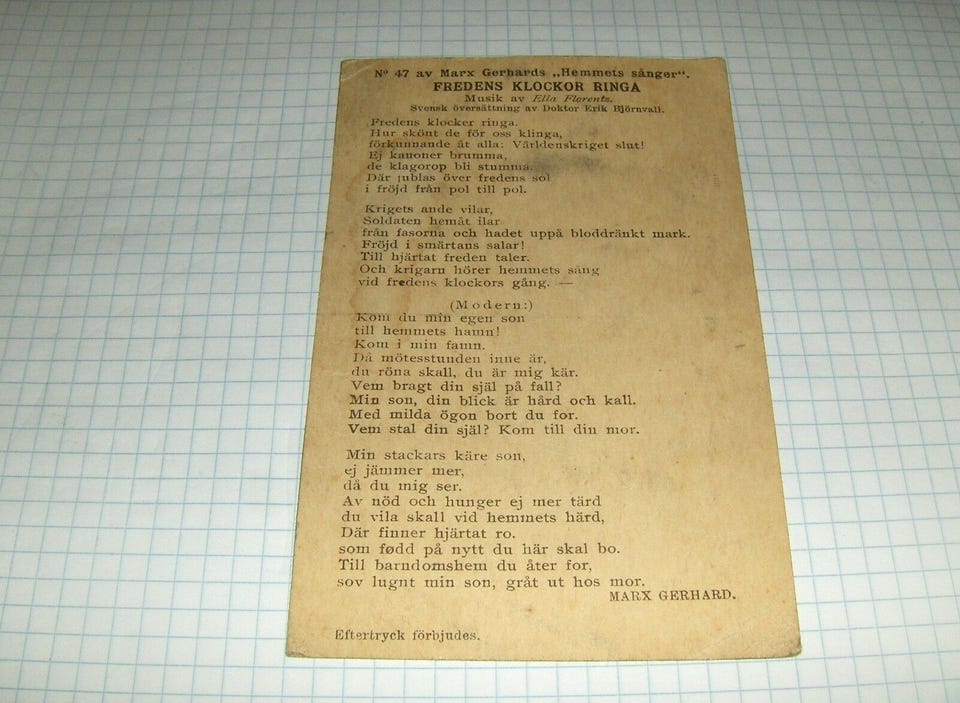 Nº 47 av Marx Gerhards „Hemmets sånger“.
FREDENS KLOCKOR RINGA
Musik av Ella Florentz.
Svensk översättning av Doktor Erik Björnvall.
Fredens klocker ringa.
Hur skönt de för oss klinga,
förkunnande åt alla: Världenskriget slut!
Ej kanoner brumma,
de klagorop bli stumma.
Där jublas över fredens sol
i fröjd från pol till pol.
Krigets ande vilar,
Soldaten hemåt ilar
från fasorna och hadet uppå bloddränkt mark.
Fröjd i smärtans salar!
Till hjärtat freden taler.
Och krigarn hörer hemmets sång
vid fredens klockors gång. —
(Modern:)
Kom du min egen son
till hemmets hamn!
Kom i min famn.
Då mötesstunden inne är,
du röna skall, du är mig kär.
Vem bragt din själ på fall?
Min son, din blick är hård och kall.
Med milda ögon bort du for.
Vem stal din själ? Kom till din mor.
Min stackars käre son,
ej jämmer mer,
då du mig ser.
Av nöd och hunger ej mer tärd
du vila skall vid hemmets härd,
Där finner hjärtat ro.
som fødd på nytt du här skal bo.
Till barndomshem du åter for,
sov lugnt min son, gråt ut hos mor.
MARX GERHARD.
Eftertryck förbjudes.